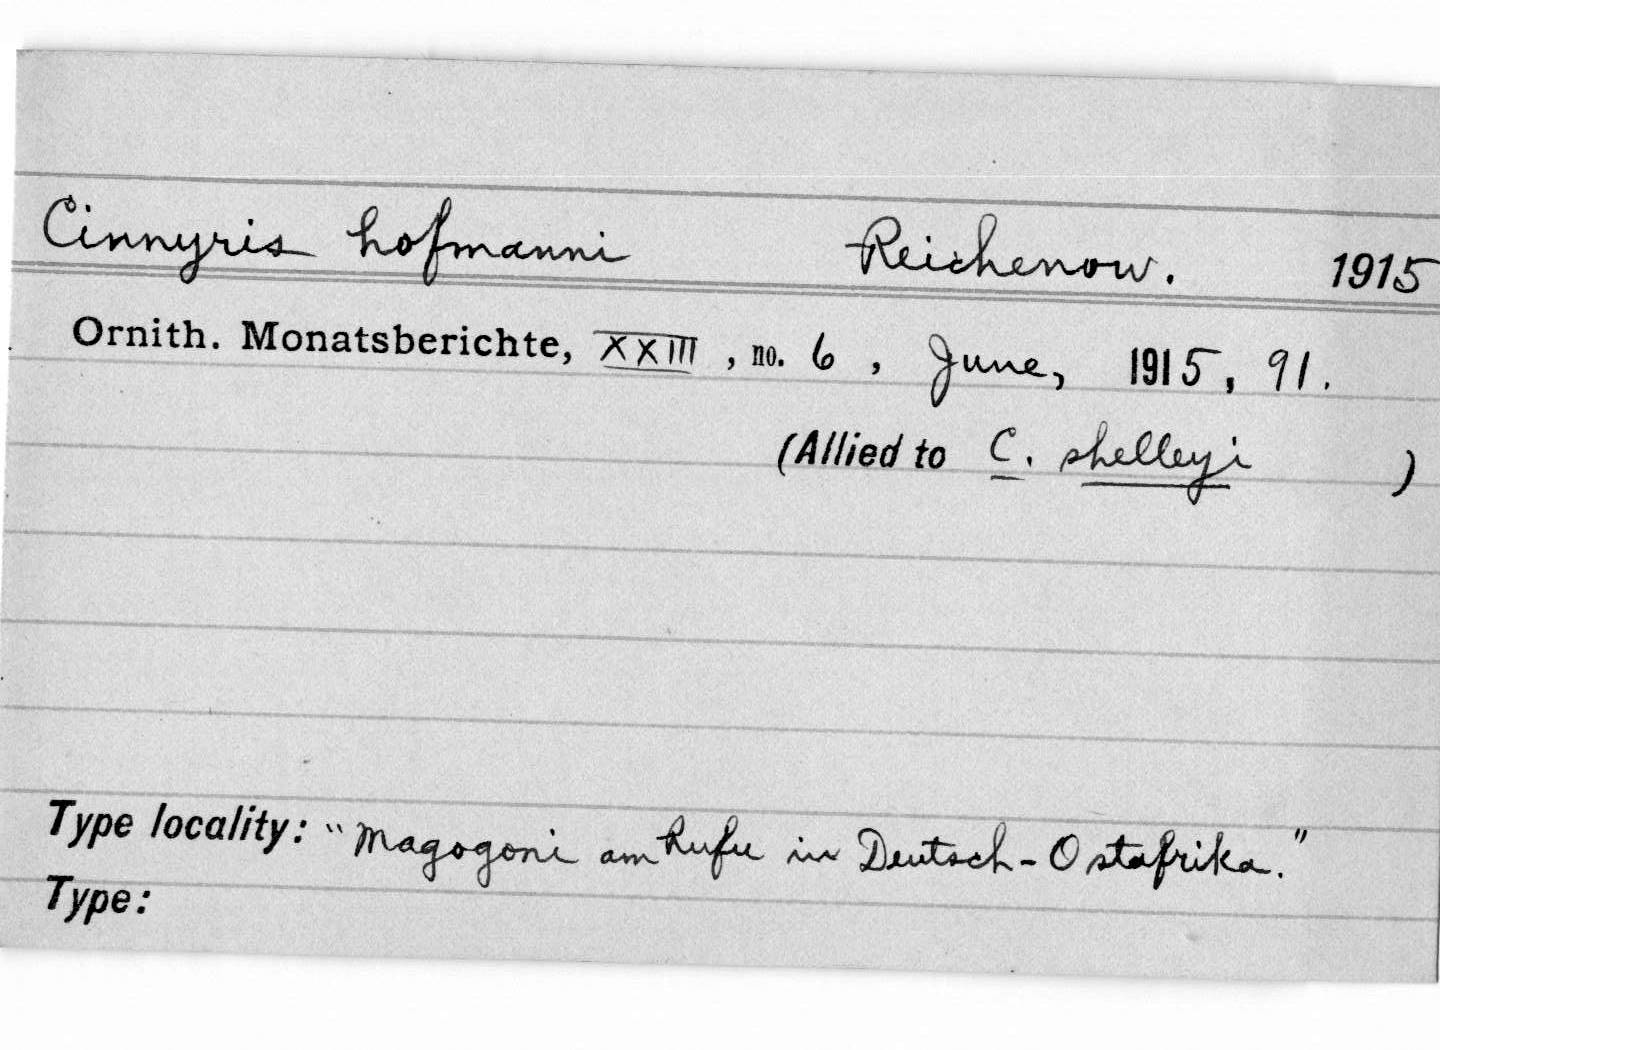 Cinnyris hofmanni Reichenow. 1915
Ornith. Monatsberichte, XXIII, no. 6, June, 1915, 91.
(Allied to C. shelleyi )
Type locality: "Magogoni am Rufu in Deutsch-Ostafrika."
Type: